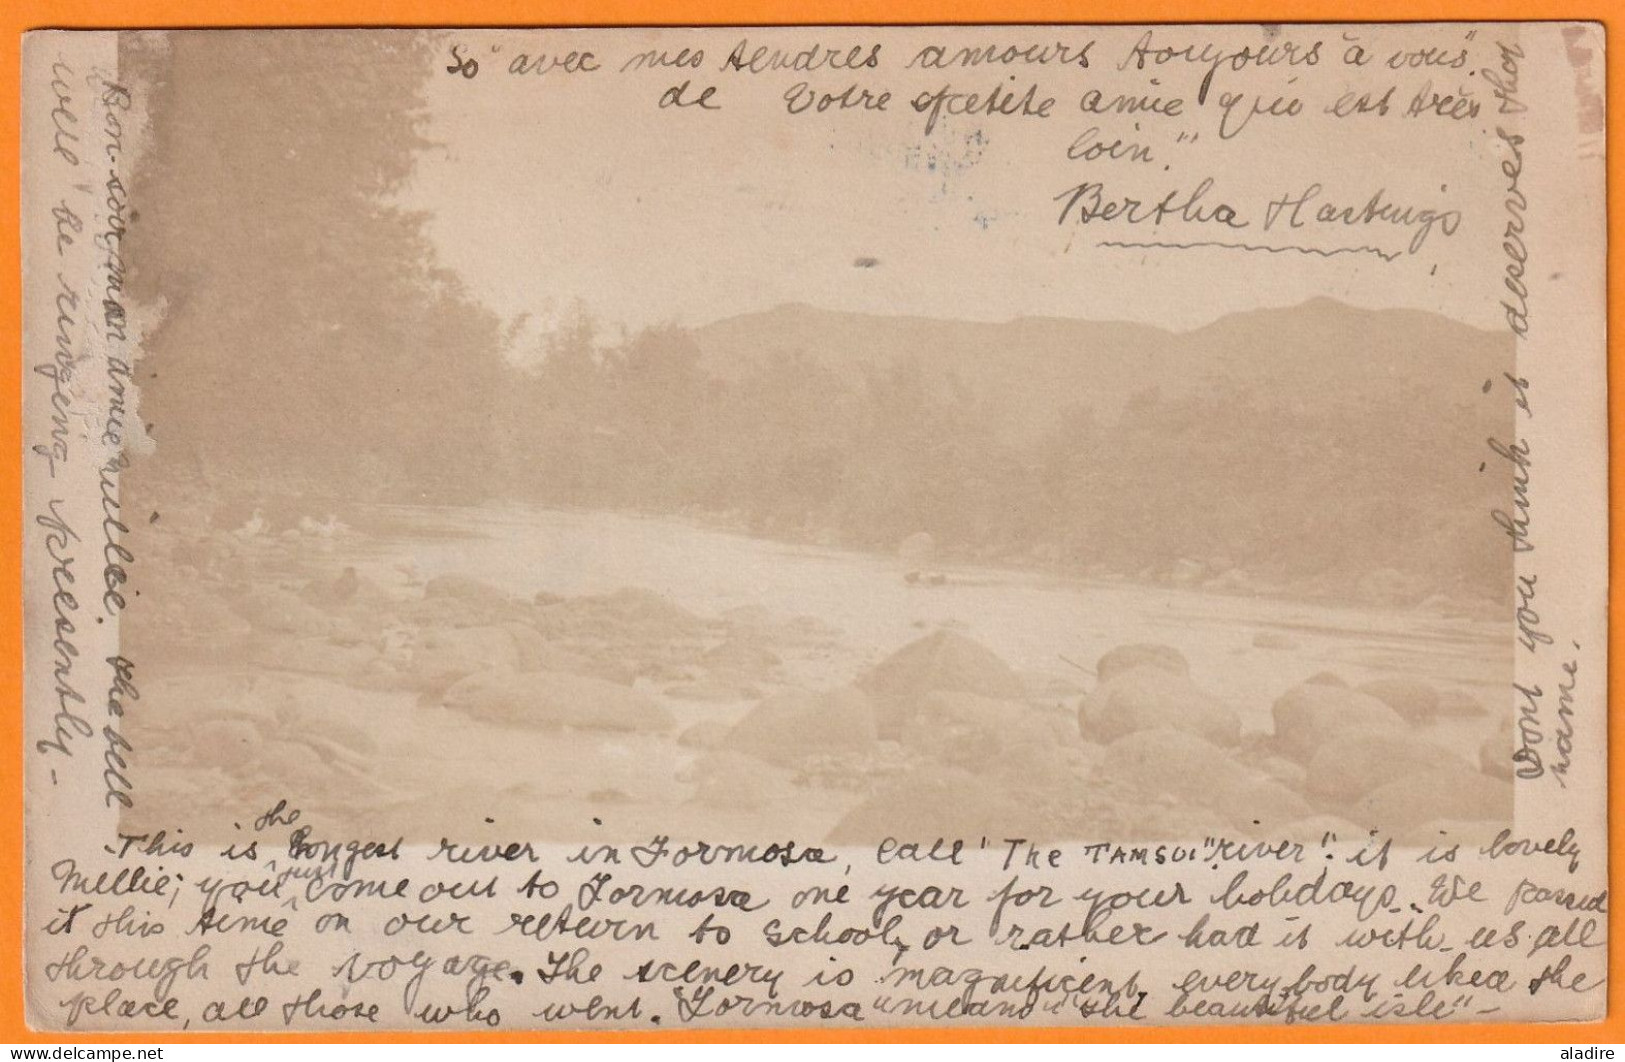 "So" avec mes tendres amours toujours "à vous".
de Votre petite amie qui est très
loin."
Bertha Hastings
This is the longest river in Formosa, call "The TAMSUI "river". it is lovely
Mellie; you just come out to Formosa one year for your holidays. We passed
it this time on our return to school, or rather had it with us all
through the voyage. The scenery is magnificent, everybody liked the
place, all those who went. "Formosa" means "the beautiful isle" -
Dont you think it deserves that
name.
Bon-soir, mon amie Millie. the bell
will be ringing presently -
aladire